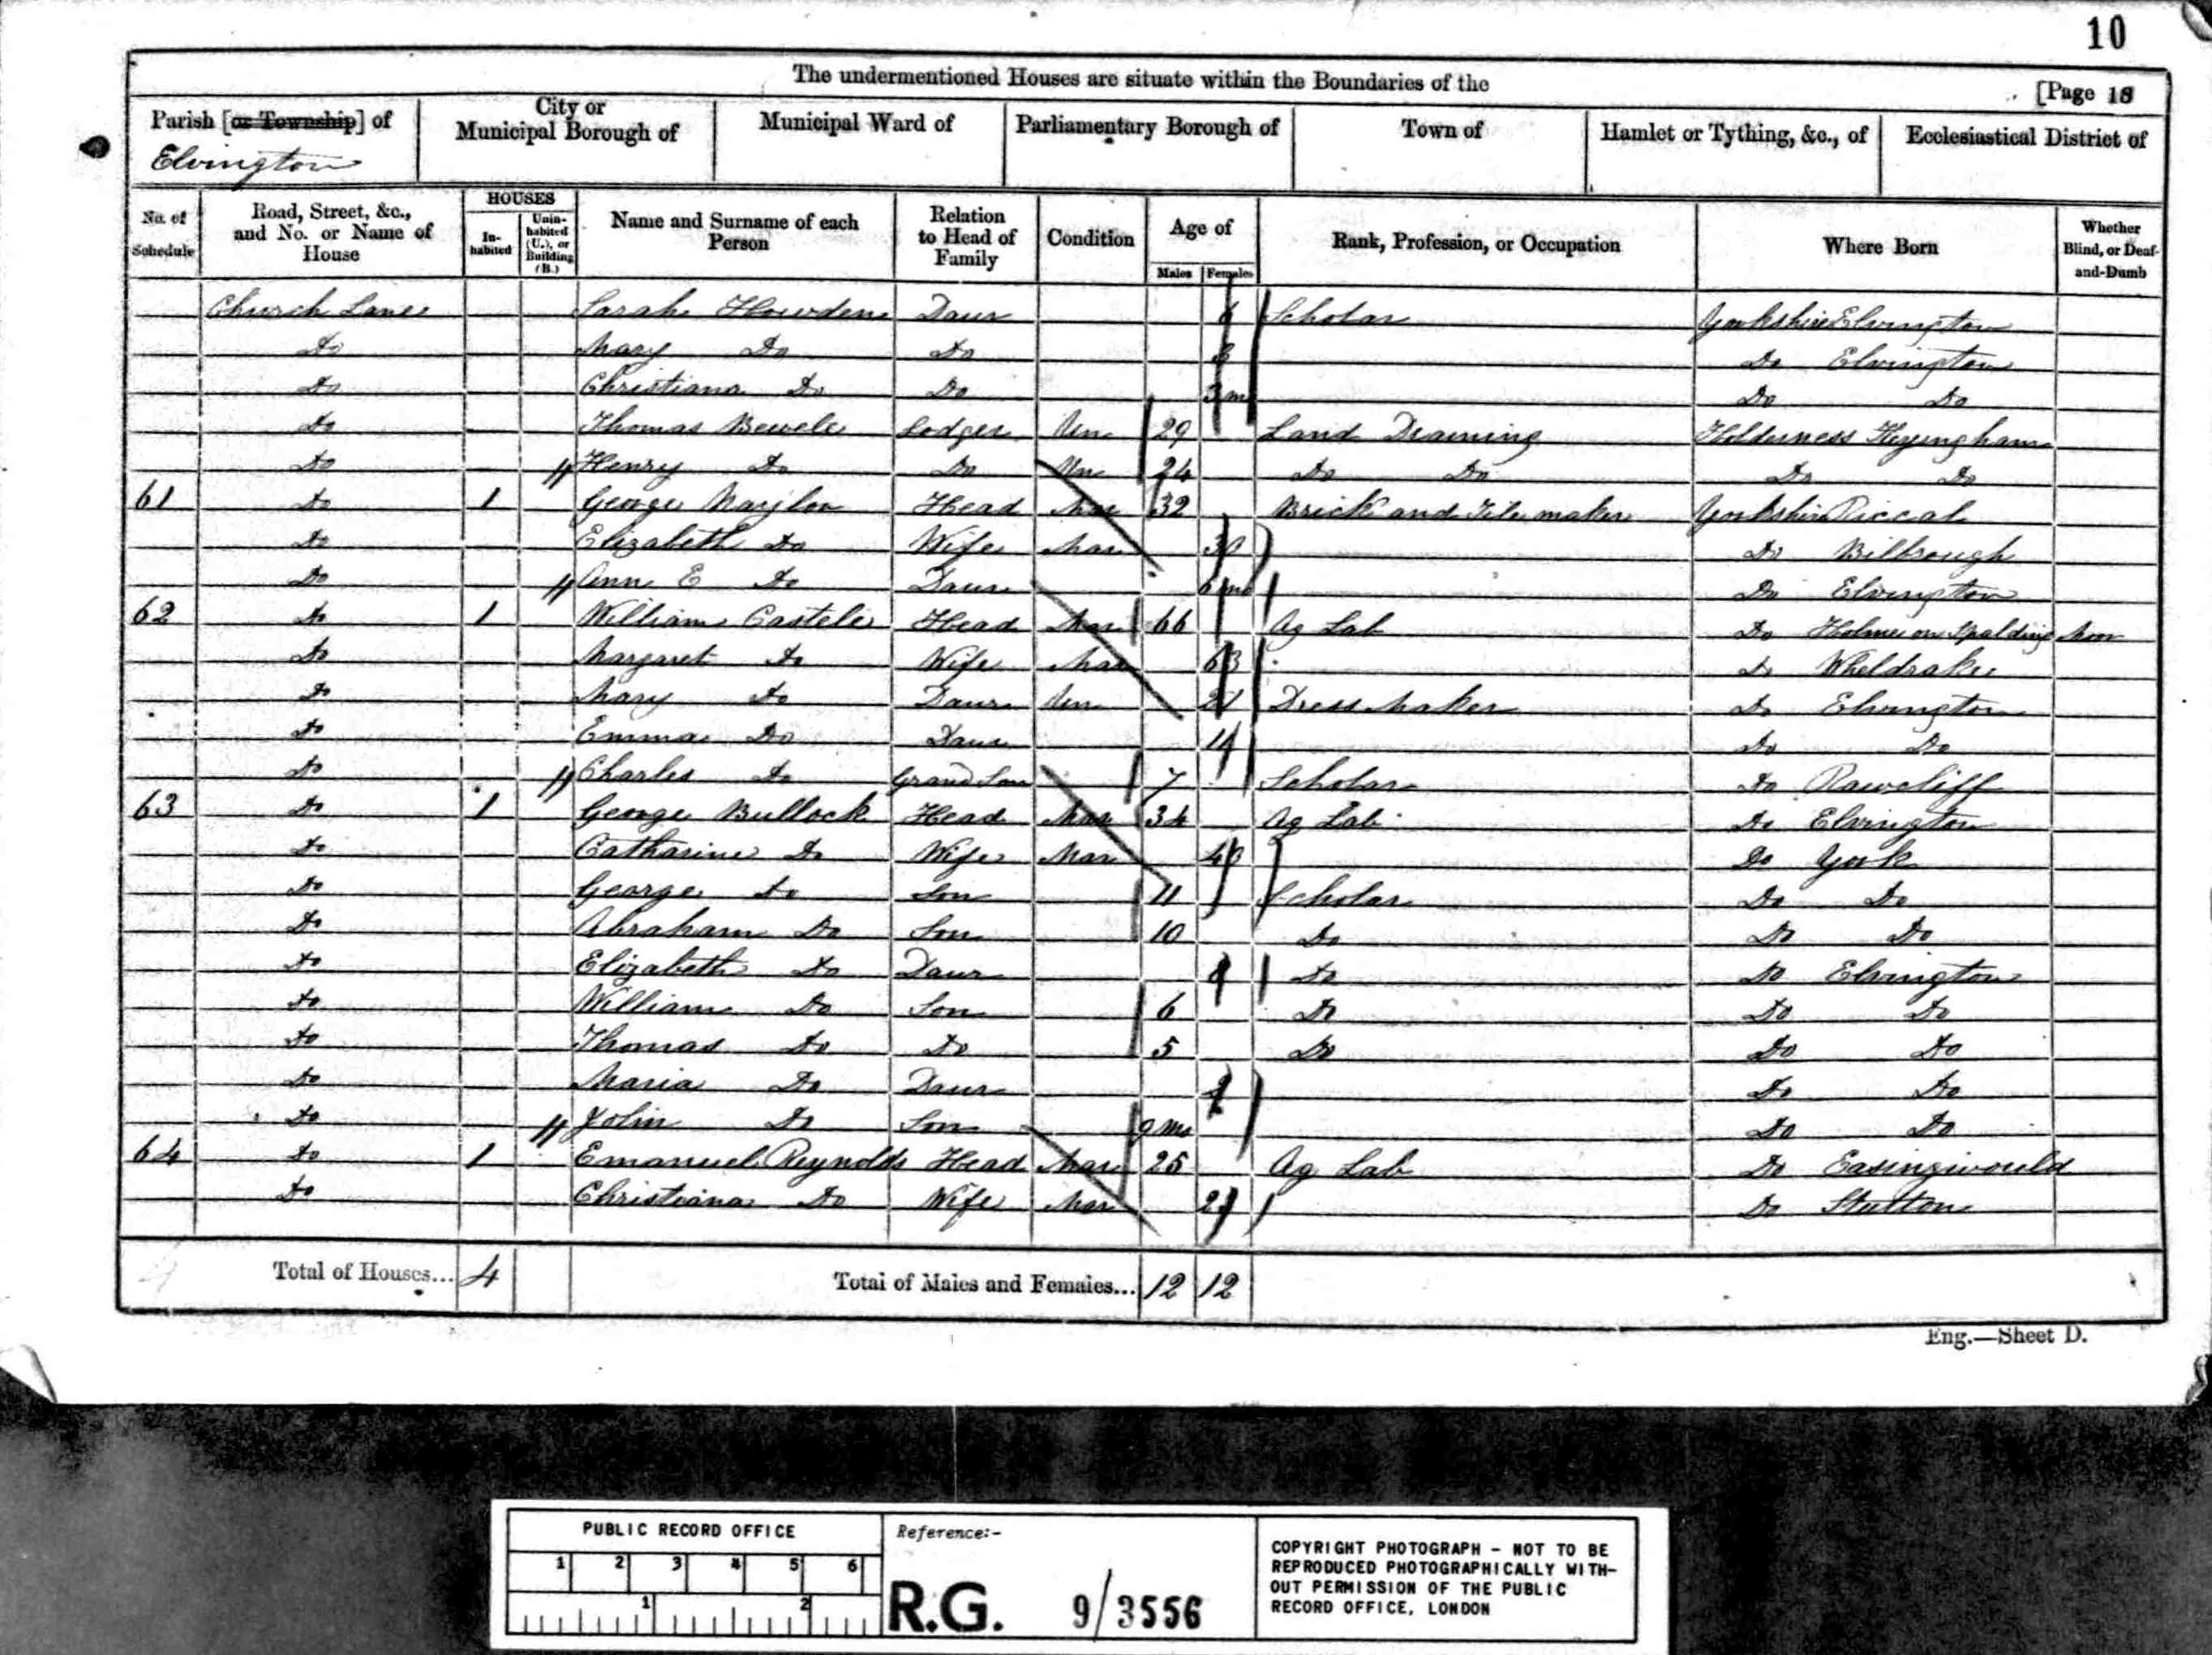 10
The undermentioned Houses are situate within the Boundaries of the
[Page 18
Parish [or Township] of
Elvington
City or
Municipal Borough of
Municipal Ward of
Parliamentary Borough of
Town of
Hamlet or Tything, &c., of
Ecclesiastical District of
No. of
Schedule
Road, Street, &c.,
and No. or Name of
House
HOUSES
In-
habited
Unin-
habited
(U.), or
Building
(B.)
Name and Surname of each
Person
Relation
to Head of
Family
Condition
Age of
Males Females
Rank, Profession, or Occupation
Where Born
Whether
Blind, or Deaf-
and-Dumb
Church Lane Sarah Howden Daur 6 Scholar Yorkshire Elvington
Do Mary Do Do 3 Do Elvington
Do Christiana Do Do 3 m Do Do
Do Thomas Lodger Un 29 Land Draining Holderness Keyingham
Do Henry Do Do Un 24 Do Do Do Do
61 Do 1 George Head Mar 32 Brick and Tile maker Yorkshire Riccal
Do Elizabeth Do Wife Mar 30 Do Bilbrough
Do Ann E Do Daur 6 mo Do Elvington
62 Do 1 William Castele Head Mar 66 Ag Lab Do Holme on Spalding Moor
Do Margaret Do Wife Mar 63 Do Wheldrake
Do Mary Do Daur Un 21 Dress Maker Do Elvington
Do Emma Do Daur 14 Do Do
Do Charles Do Grand Son 7 Scholar Do Rawcliff
63 Do 1 George Bullock Head Mar 34 Ag Lab Do Elvington
Do Catharine Do Wife Mar 40 Do York
Do George Do Son 11 Scholar Do Do
Do Abraham Do Son 10 Do Do Do
Do Elizabeth Do Daur 8 Do Do Elvington
Do William Do Son 6 Do Do Do
Do Thomas Do Do 5 Do Do Do
Do Maria Do Daur 2 Do Do
Do John Do Son 9 ms Do Do
64 Do 1 Emanuel Reynolds Head Mar 25 Ag Lab Do Easingwould
Do Christiana Do Wife Mar Do Stutton
Total of Houses... 4
Total of Males and Females... 12 12
Eng.—Sheet D.
PUBLIC RECORD OFFICE
1 2 3 4 5 6
1 2
Reference:-
R.G. 9/3556
COPYRIGHT PHOTOGRAPH - NOT TO BE
REPRODUCED PHOTOGRAPHICALLY WITH-
OUT PERMISSION OF THE PUBLIC
RECORD OFFICE, LONDON